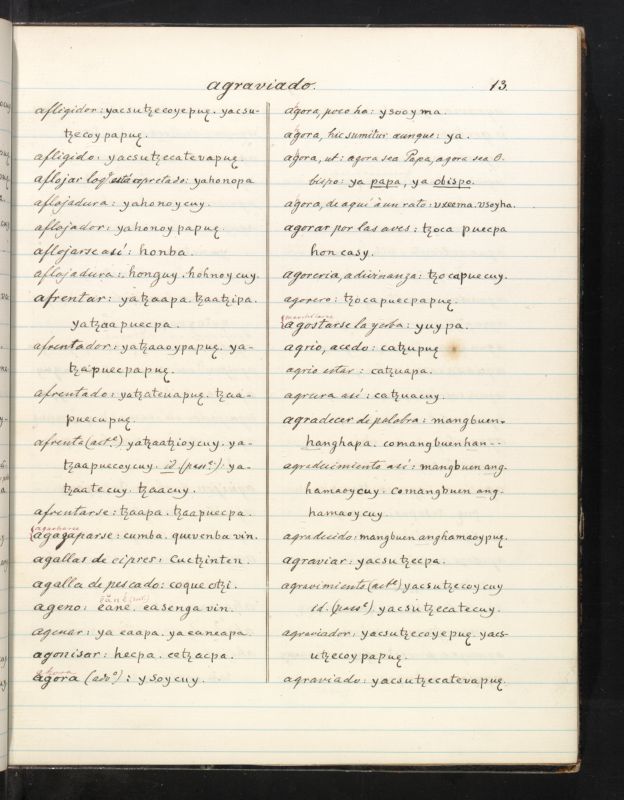 agraviado.
13.
afligidor: yacsutȥecoyepuȩ. yacsu-
tȥecoy papuȩ.
afligido: yacsutȥecatevapuȩ.
aflojar lo qᵉ está apretado: yahonopa
aflojadura: yahonoycuy.
aflojador: yahonoy papuȩ.
aflojarse así: honba.
aflojadura: honguy. hohnoy cuy.
afrentar: yatȥaapa. tȥaatȥipa.
yatȥaapuecpa.
afrentador: yatȥaaoypapuȩ. ya-
tȥapuecpapuȩ.
afrentado: yatȥatevapuȩ. tȥaa-
puecupuȩ.
afrenta (actᵃ) yatȥaatȥioycuy. ya-
tȥaapuecoycuy. id. (passᵃ): ya-
tȥaatecuy. tȥaacuy.
afrentarse: tȥaapa. tȥaapuecpa.
agacharse
agaȥaparse: cumba. quevenba vin.
agallas de cipres: cuctȥinten.
agalla de pescado: coque otȥi.
ageno: eane. easenga vin.
agenar: ya eaapa. ya eaneapa.
agonisar: hecpa. cetȥacpa.
ahora
agora (adv.º): ysoycuy.
agora, poco ha: ysooyma.
agora, hic sumitur aunque: ya.
agora, ut: agora sea Papa, agora sea O-
bispo: ya papa, ya obispo.
agora, de aquí à un rato: uxeema. usoyha.
agorar por las aves: tȥoca puecpa
hon casy.
agoreria, adivinanza: tȥocapuecuy.
agorero: tȥocapuecpapuȩ.
marchitarse
agostarse la yerba: yuypa.
agrio, acedo: catȥupuȩ
agrio estar: catȥuapa.
agrura así: catȥuacuy.
agradecer de palabra: mangbuen-
hanghapa. comangbuenhan--
agradecimiento así: mangbuen ang-
hamaoycuy. comangbuen ang-
hamaoycuy.
agradecido: mangbuen anghamaoypuȩ.
agraviar: yacsutȥecpa.
agravimiento (actᵃ) yacsutȥecoycuy
id. (passᵃ) yacsutȥecatecuy.
agraviador: yacsutȥecoyepuȩ. yacs-
utȥecoy papuȩ.
agraviado: yacsutȥecatevapuȩ.